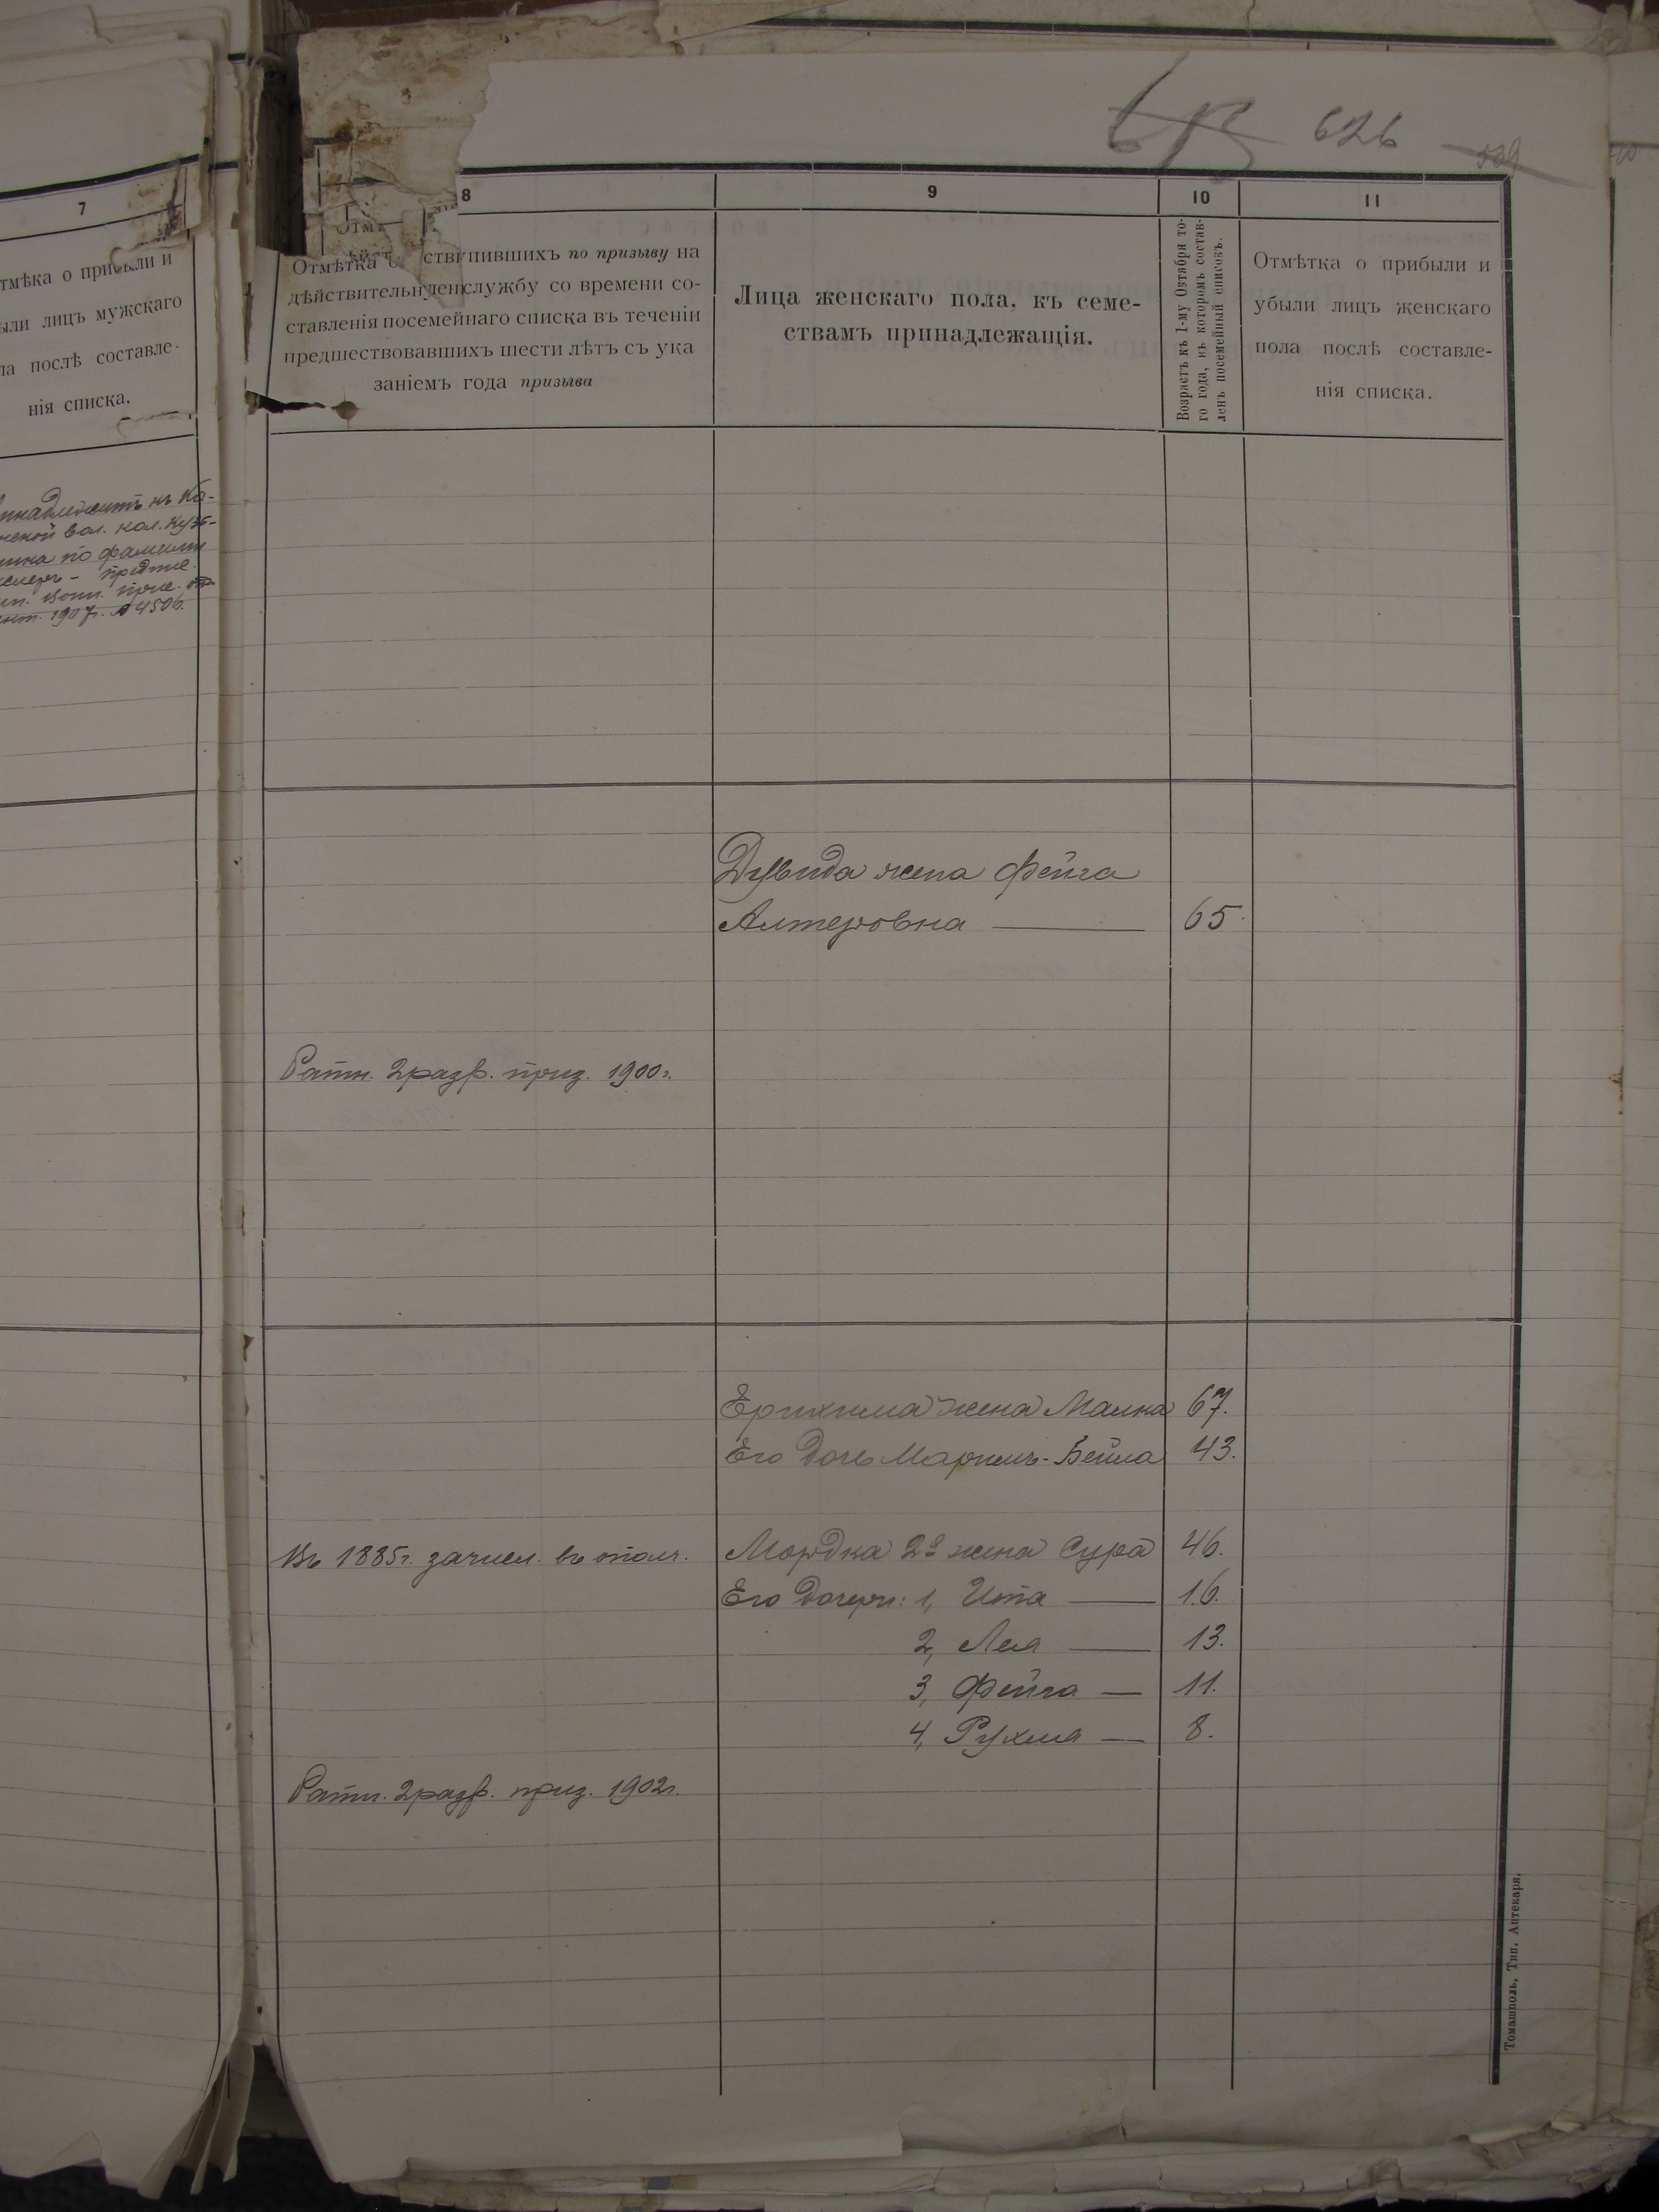 626
539
7
тмѣка о прибыли и
ыли лицъ мужскаго
ла послѣ составле-
нія списка.
вол. кол.
по фамиліи
1907г. № 4506.
8
Отмѣтка ствупившихъ по призыву на
службу со времени со-
ставленія посемейнаго списка въ теченіи
предшествовавшихъ шести лѣтъ съ ука
заніемъ года призыва
9
Лица женскаго пола, къ семе-
ствамъ принадлежащія.
10
Возрастъ къ 1-му Октября то-
го года, въ которомъ состав-
ленъ посемейный списокъ.
11
Отмѣтка о прибыли и
убыли лицъ женскаго
пола послѣ составле-
нія списка.
Дувида жена Фейга
Алтеровна — 65.
Ратн. 2 разр. приз. 1900г.
Ерихима жена Малка 67.
Его дочь Маріимъ-Бейла 43.
Въ 1885г. зачисл. въ ополч. Мордка 2я жена Сура 46.
Его дочери: 1, Ита — 16.
2, Лея — 13.
3, Фейга — 11.
4, Рухля — 8.
Ратн. 2 разр. приз. 1902г.
Томашполь, Тип. Аптекаря.